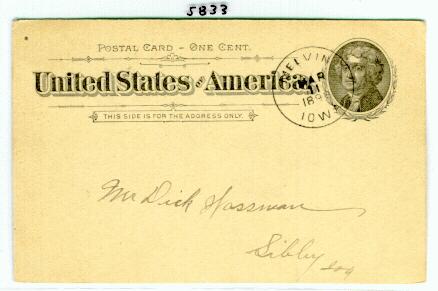 5833
POSTAL CARD – ONE CENT.
United States of America.
THIS SIDE IS FOR THE ADDRESS ONLY.
MELVIN
MAR
11
189
IOW
Mr Dick Hassman
Sibley
Ioa